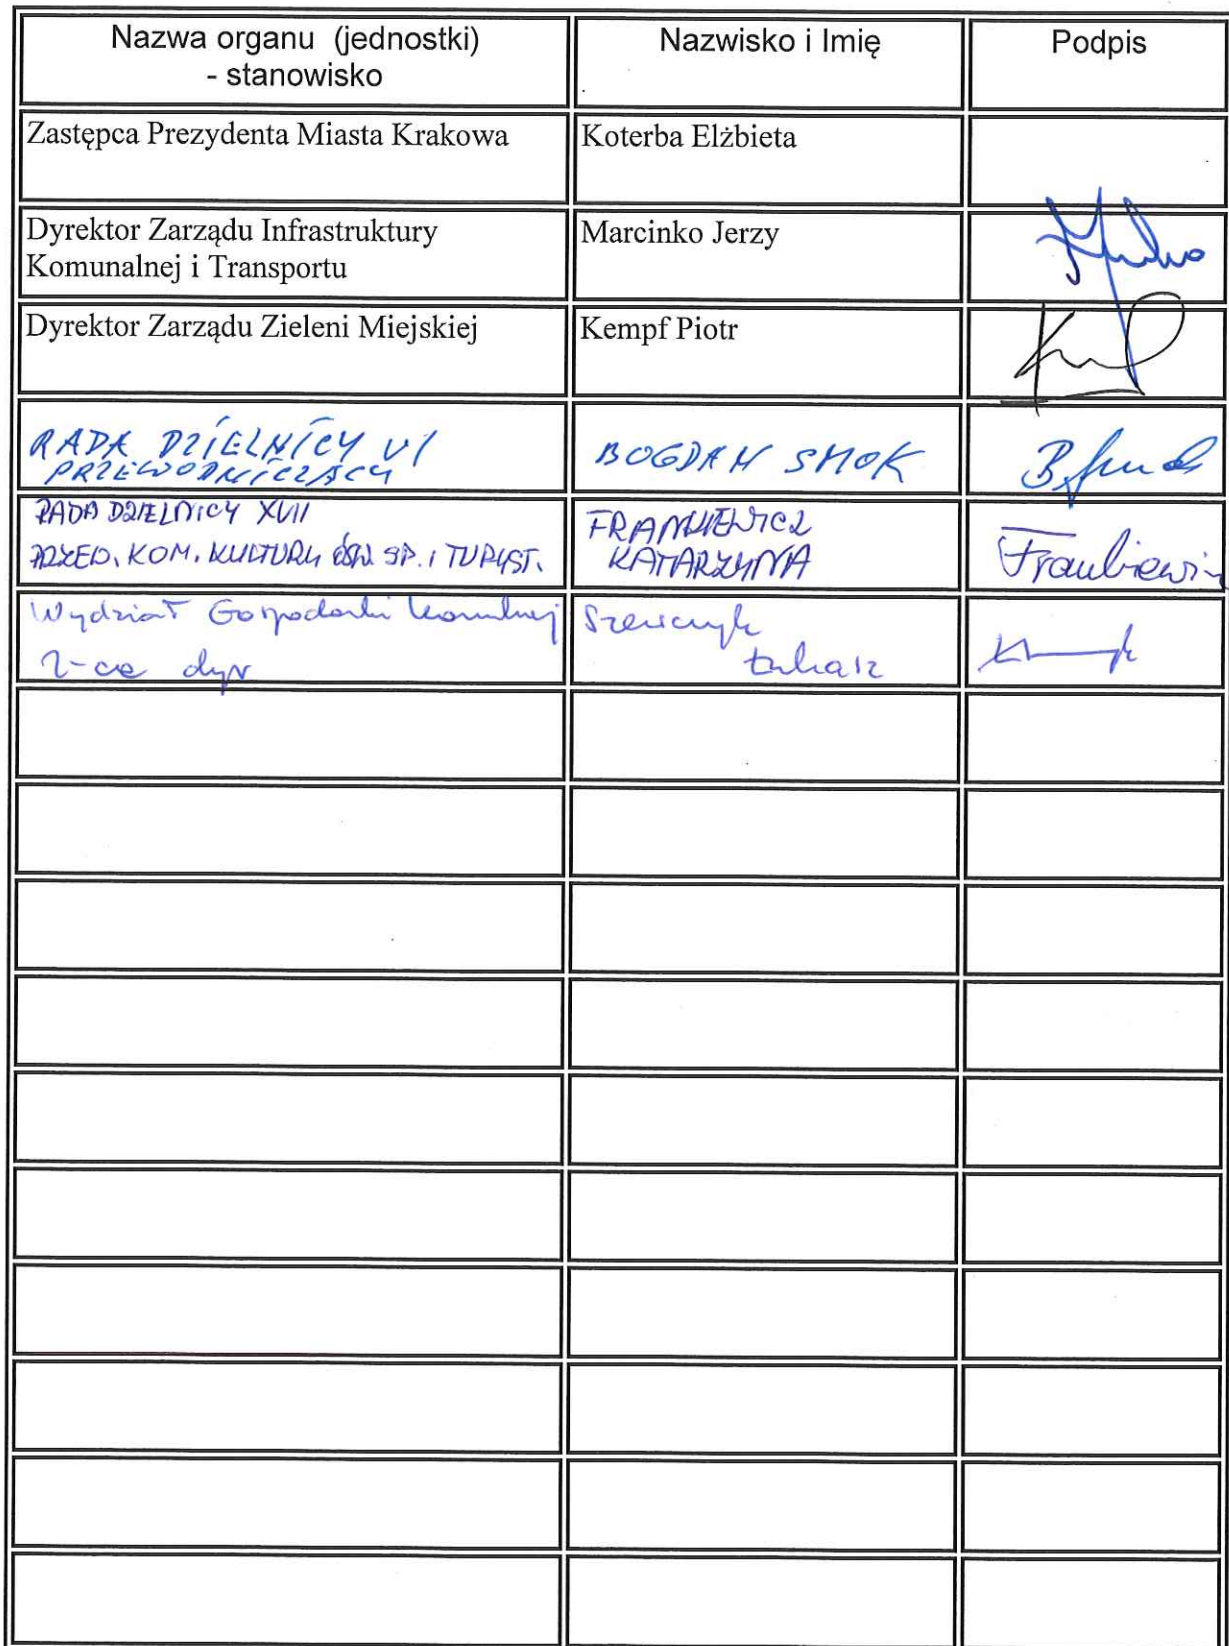 Nazwa organu (jednostki)
- stanowisko
Nazwisko i Imię
Podpis
Zastępca Prezydenta Miasta Krakowa
Koterba Elżbieta
Dyrektor Zarządu Infrastruktury
Komunalnej i Transportu
Marcinko Jerzy
Dyrektor Zarządu Zieleni Miejskiej
Kempf Piotr
RADA DZIELNICY VI
PRZEWODNICZĄCY
BOGDAN SMOK
RADA DZIELNICY XVII
PRZED. KOM. KULTURY OŚW. SP. i TURYST.
FRANKIEWICZ
KATARZYNA
Frankiewicz
Wydział Gospodarki Komunalnej
Z-ca dyr
Szewczyk
Łukasz